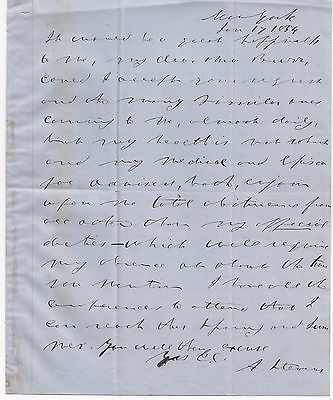 New York
Jan 17 1854
It would be a great happiness
to me, my dear Bro Burr,
could I accept your request
and the many similar ones
coming to me, almost daily,
but my health is not robust
and my medical and Episco
pal advisers, both, enjoin
upon me total abstinence from
all other than my official
duties—which will require
my absence at about the time
you mention I have all the
conferences to attend that I
can reach this Spring and Sum
mer. You will then excuse
Yrs
A Stevens